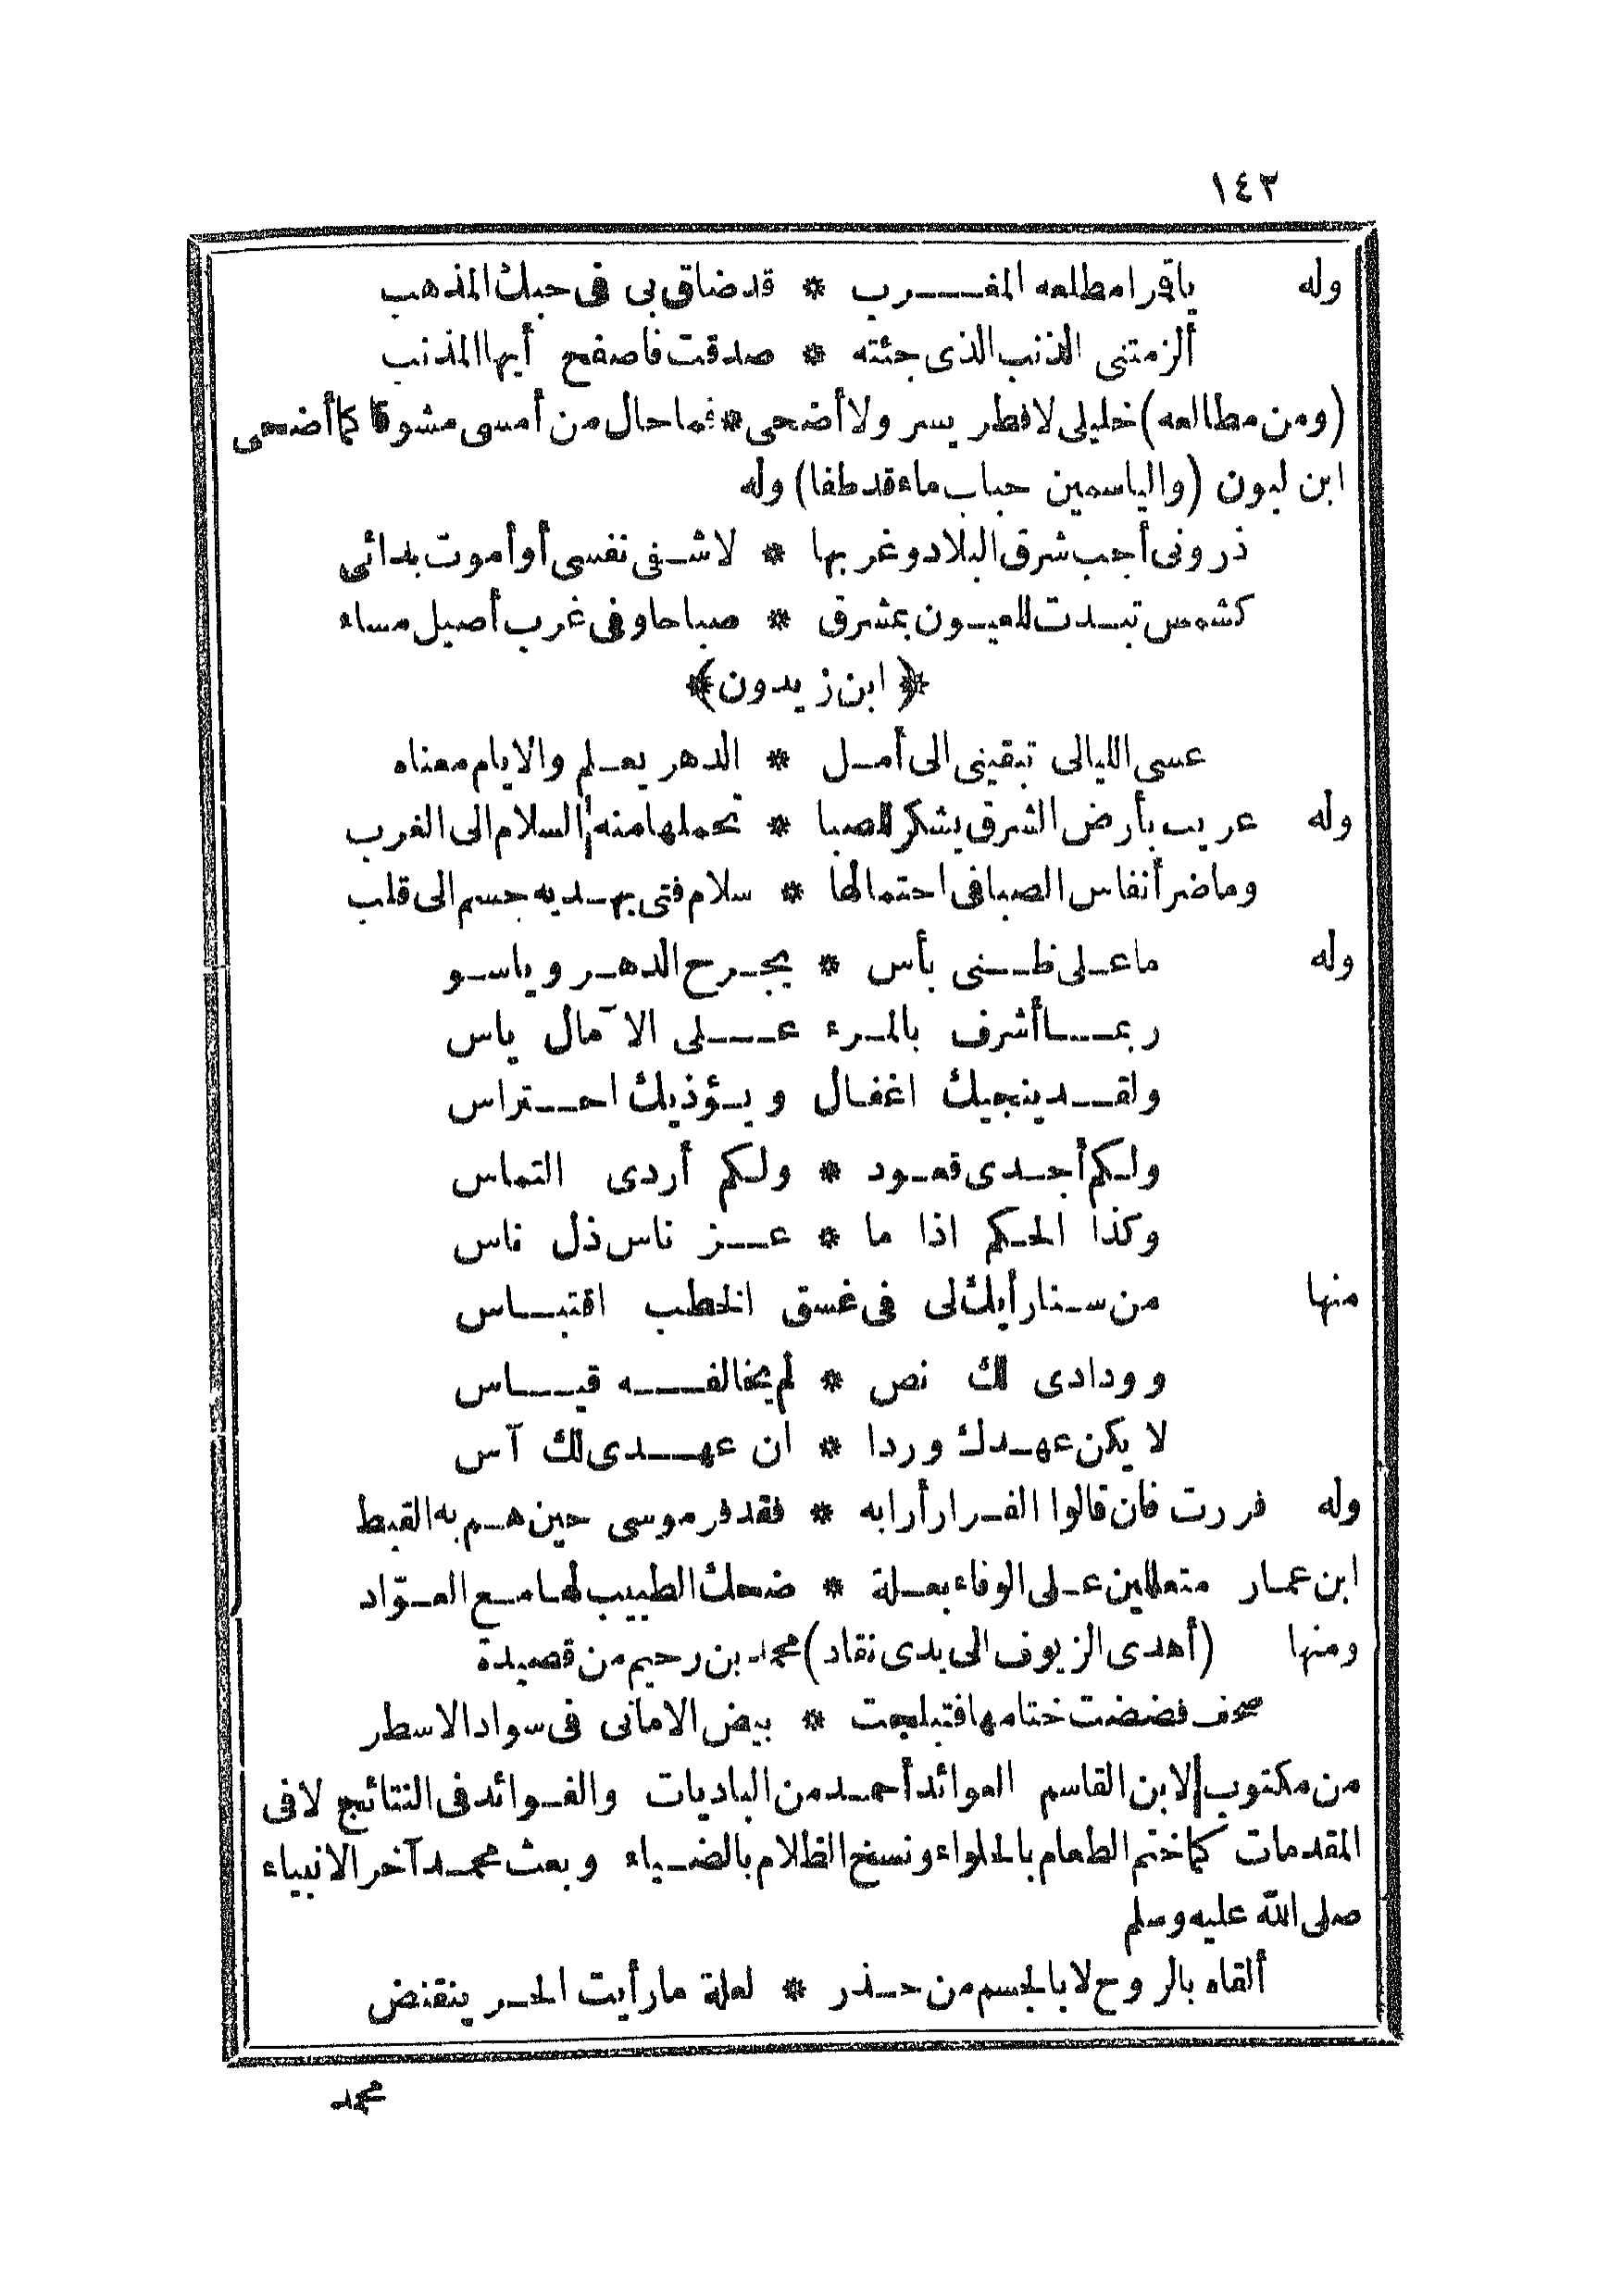 ١٤٢
وله ياقرا مطلعه المغرب * قد ضاق بى فى حبك المذهب
ألزمتنى الذنب الذى جئته * صدقت فاصفح أيها المذنب
(ومن مطالعه) خليلى لا فطر يسر ولا أضحى * فما حال من أمسى مشوقا كما أضحى
ابن لبون (والياسمين حباب ماء قد طفا) وله
ذرونى أجب شرق البلاد وغربها * لاشفى نفسى أو أموت بدائى
كشمس تبدت للعيون بمشرق * صباحا وفى غرب أصيل مساء
﴿ ابن زيدون ﴾
عسى الليالى تبقينى الى أمل * الدهر يعلم والايام معناه
وله عريب بأرض الشرق يشكر للصبا * تحملها منه السلام الى الغرب
وما ضر أنفاس الصبا فى احتمالها * سلام فتى يهديه جسم الى قلب
وله ما على ظنى بأس * يجرح الدهر وياسو
ربما أشرف بالمرء على الآمال ياس
ولقد ينجيك اغفال ويؤذيك احتراس
ولكم أجدى قعود * ولكم أردى التماس
وكذا الحكم اذا ما * عز ناس ذل ناس
منها من سنا رأيك لى فى غسق الخطب اقتباس
وودادى لك نص * لم يخالفه قياس
لا يكن عهدك وردا * ان عهدى لك آس
وله فررت فان قالوا الفرار أرابه * فقد فر موسى حين هم به القبط
ابن عمار متعللين على الوفاء بعلة * ضحك الطبيب لها مع العوّاد
ومنها (أهدى الزيوف الى يدى نقاد) محمد بن رحيم من قصيدة
صحف فضضت ختامها فتبلجت * بيض الامانى فى سواد الاسطر
من مكتوب لابن القاسم العوائد أحمد من الباديات والفوائد فى النتائج لا فى
المقدمات كما ختم الطعام بالحلواء ونسخ الظلام بالضياء وبعث محمد آخر الانبياء
صلى الله عليه وسلم
ألقاه بالروح لا بالجسم من حذر * لعلة ما رأيت الحر ينقنض
محمد